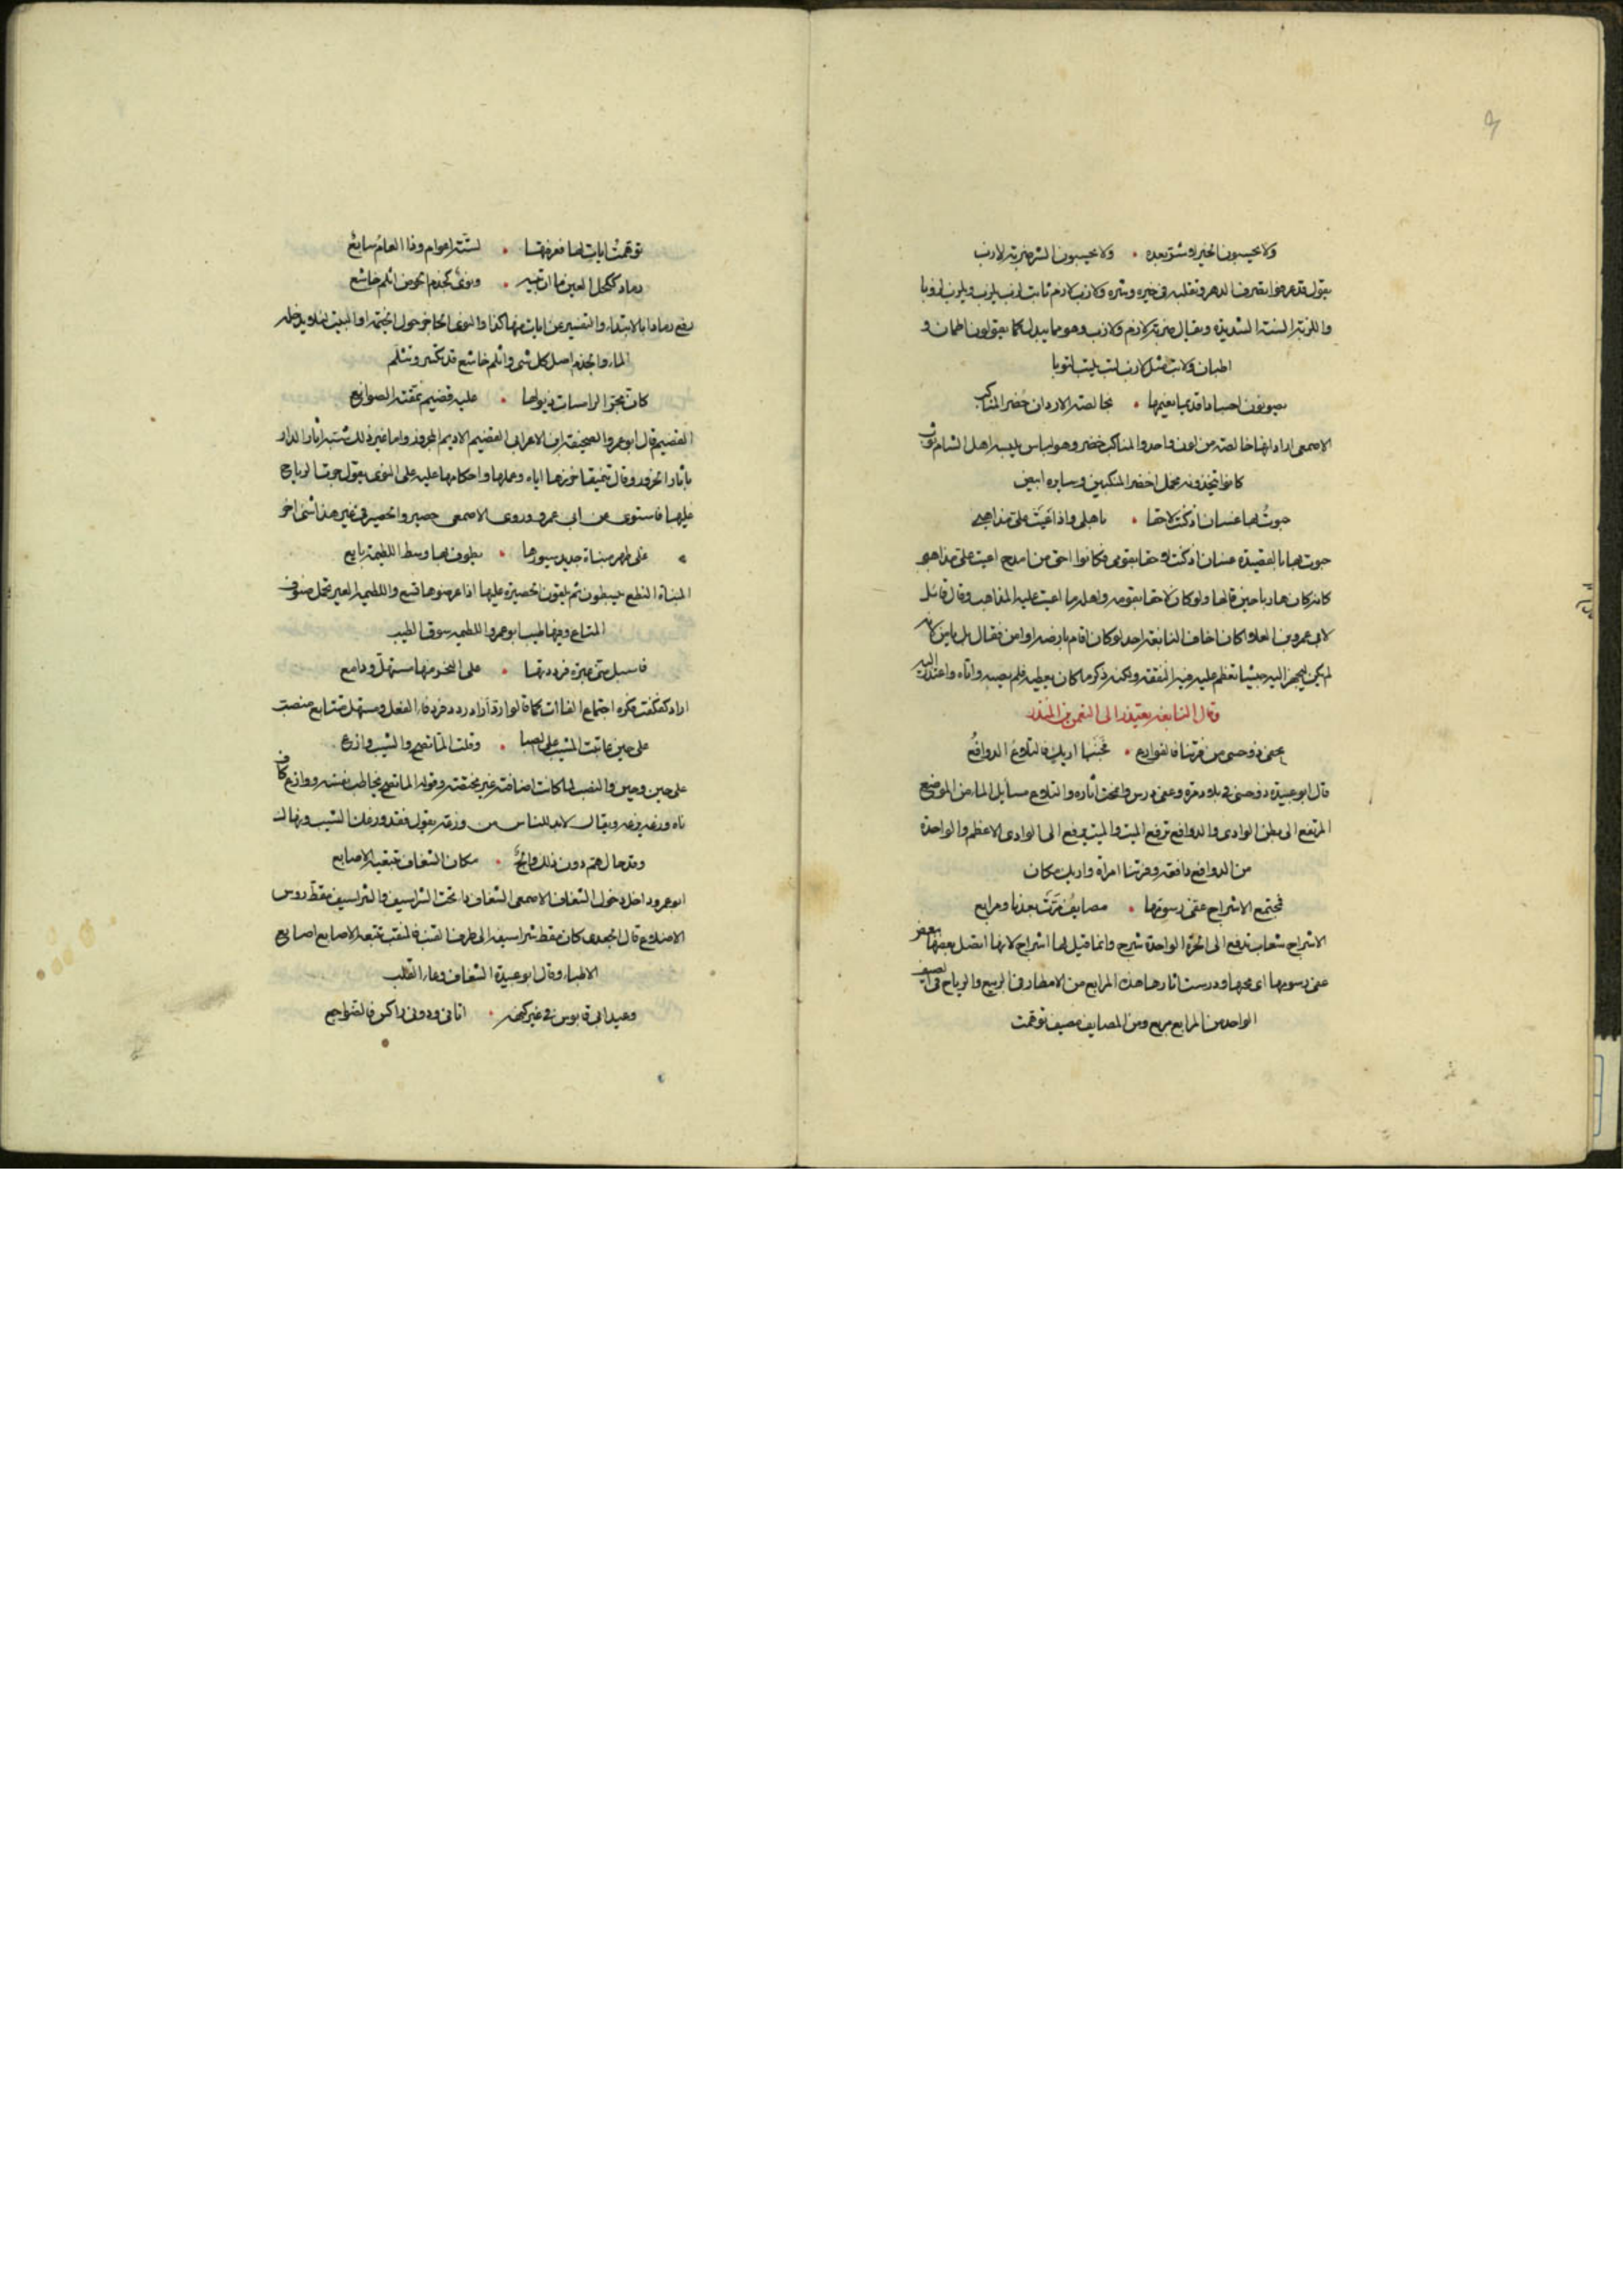 ولا يحسبون الخير لا شر بعده • ولا يحسبون الشر ضربة لازب
يقول قد عرفوا تصرف الدهر وتقلبه في خيره وشره ولازب لازم ثابت لزب يلزب ويلزب لزوبا
واللزبة السنة الشديدة ويقال ضربة لازم ولازب وهو مما يبدل كما يقولون اطمان و
اطبان ولاتب مثل لازب لتب يلتب لتوبا
يصونون اجسادا قديما نعيمها • بخالصة الاردان خضر المناكب
الاصمعى اراد انها خالصة من لون واحد والمناكب خضر وهو لباس يلبسه اهل الشام ثوب
كانوا يتخذونه يجعل اخضر المنكبين وسايره ابيض
حبوت بها غسان اذ كنت لاحقا • باهلى واذ اعيت على مذاهبى
حبوت بها بالقصيدة غسان اذ كنت لاحقا بقومى فكانوا احق من امدح اعيت على مذاهبى
كانه كان هاربا حين قالها ولو كان لاحقا بقومه واهله ما اعيت عليه المذاهب وقال قائل
لابى عمرو بن العلا اكان اخاف النابغة احد لو كان اقام بارضه او امن فقال بل يامن لانه
لم يكن ليجهز اليه جيشا تعظم عليه فيه النفقة ولكنه ذكر ما كان يعطيه فلم يصبر واتاه واعتذر اليه
وقال النابغة يعتذر الى النعمن بن المنذر
عفى ذو حسى من فرتنا فالفوارع • فجنبا اريك فالتلاع الدوافع
قال ابو عبيدة ذو حسى فى بلاد مرة وعفى درس وامحت اثاره والتلاع مسايل الما من الموضع
المرتفع الى بطن الوادى والدوافع تدفع الميث والميث يدفع الى الوادى الاعظم والواحدة
من الدوافع دافعة وفرتنا امراة واريك مكان
فمجتمع الاشراج عفى رسومها • مصايف مرت بعدنا ومرابع
الاشراج شعاب تدفع الى الحرة الواحدة شرج وانما قيل لها اشراج لانها اتصل بعضها ببعض
عفى رسومها اى محها ودرست اثارها هذه المرابع من الامطار فى الربيع والرياح فى الصيف
الواحد من المرابع مربع ومن المصايف مصيف توهمت
توهمت ايات لها فعرفتها • لستة اعوام وذا العام سابع
رماد ككحل العين ما ان تبينه • ونؤى كجذم الحوض اثلم خاشع
رفع رمادا بالابتداء والتفسير عن ايات منها كذا والنوى الحاجز حول الخيمة او البيت لئلا يدخله
الماء والجذم اصل كل شى واثلم خاشع قد تكسر وتثلم
كان مجر الرامسات ذيولها • عليه قضيم نمقته الصوانع
القضيم قال ابو عمرو الصحيفة ابن الاعرابى القضيم الاديم المخروز واما غير ذلك شبه اثار الدار
باثار الخروز وقال تنميقها خرزها اياه وعملها واحكامها عليه على النوى يقول جرت الرياح
عليها فاستوى عن ابى عمرو وروى الاصمعى حصير والحصير فى غير هذا شى اخر
على ظهر مبناة جديد سيورها • يطوف بها وسط اللطيمة بايع
المبناة النطع يبسطون ثم يلقون الحصيرة عليها اذا عرضوها لتبع واللطيمة العير تحمل صنوف
المتاع وفيها طيب ابو عمرو اللطيمة سوق الطيب
فاسبل منى عبرة فرددتها • على النحر منها مستهل ودامع
اراد كفكفت فكره اجتماع الفاات كما قالوا ردد فرد فاء الفعل ومستهل متتابع منصب
على حين عاتبت المشيب على الصبا • وقلت الما تصح والشيب وازع
على حين وحين والنصب لما كانت اضافته غير محققة وقوله الما تصح يخاطب نفسه ووازع كاف
ناه وزعه يزعه ويقال لابد للناس من وزعة يقول فقد وزعك الشيب ونهاك
وقد حال هم دون ذلك والج • مكان الشغاف تبتغيه الاصابع
ابو عمرو داخل دخول الشغاف الاصمعى الشغاف دا تحت الشراسيف والشراسيف مقط روس
الاضلاع قال الجعدى كان مقط شراسيفه الى طرف القنب فالمنقب تتبعه الاصابع اصابع
الاطباء وقال ابو عبيدة الشغاف وعاء القلب
وعيد ابى قابوس فى غير كنهه • اتانى ودونى راكس فالضواجع